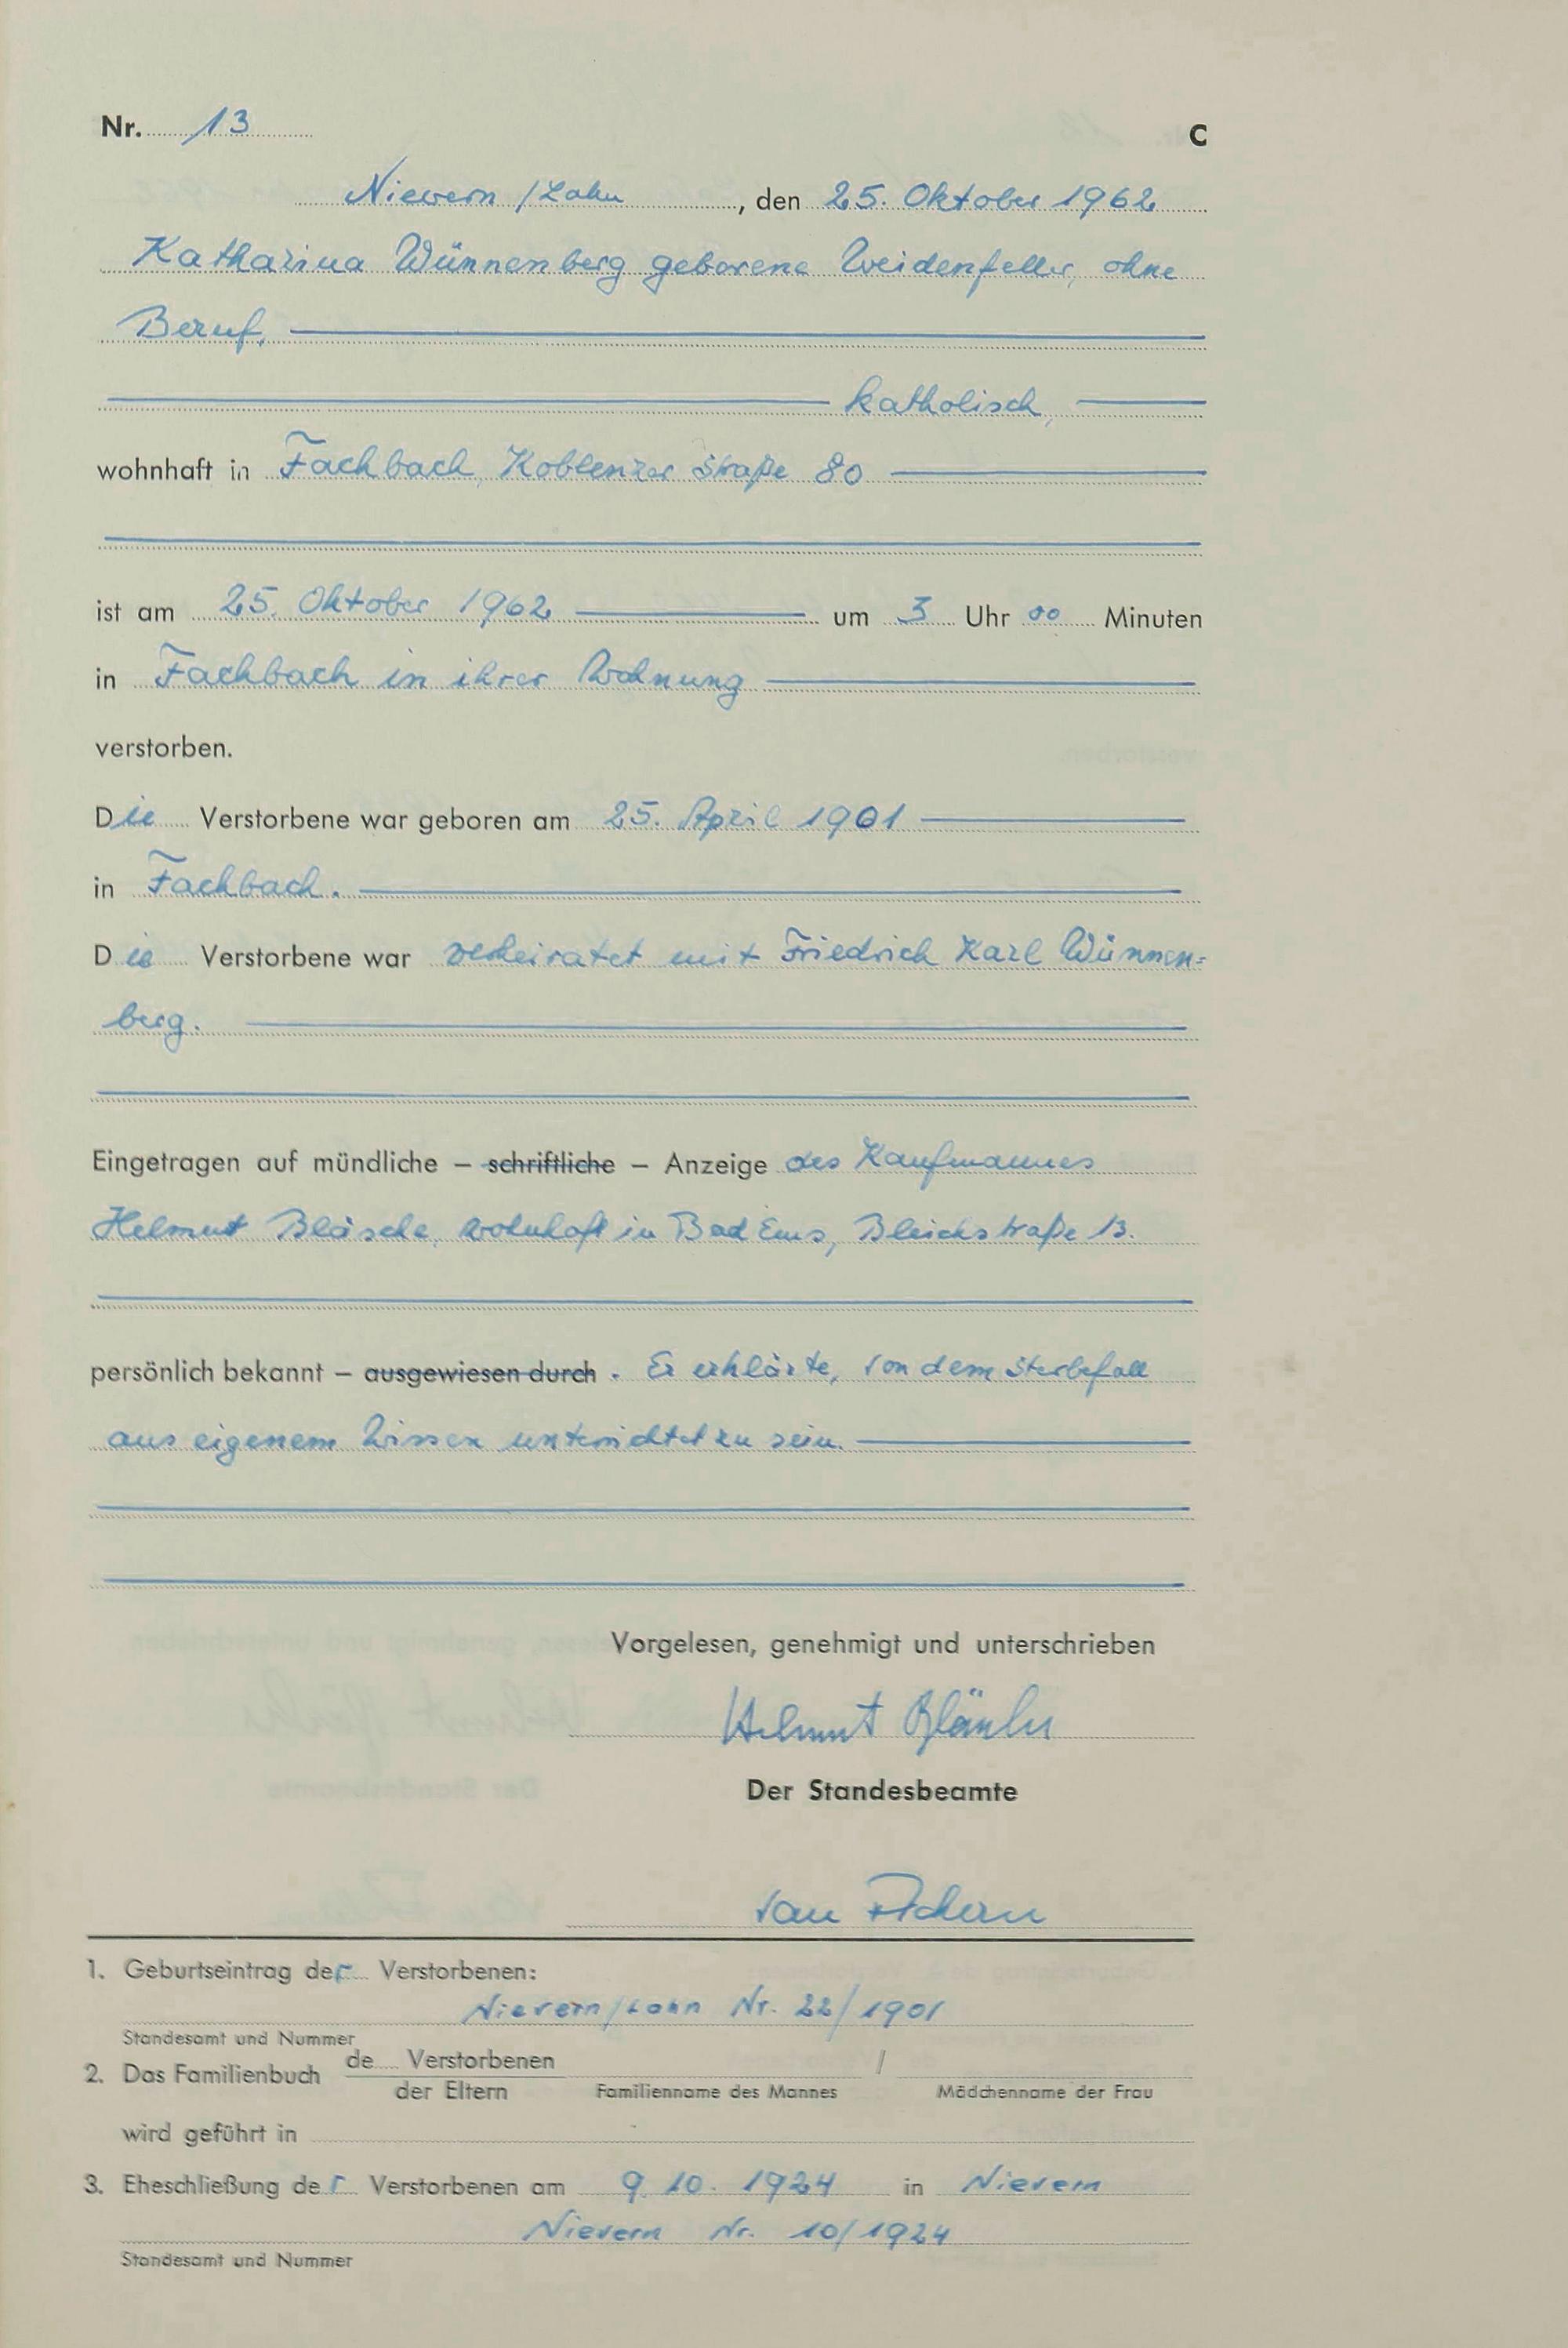 Nr. 13 C
Nievern/Lahn, den 25. Oktober 1962
Katharina Wünnenberg geborene Weidenfeller, ohne
Beruf,
katholisch,
wohnhaft in Fachbach, Koblenzer Straße 80
ist am 25. Oktober 1962 um 3 Uhr 00 Minuten
in Fachbach in ihrer Wohnung
verstorben.
Die Verstorbene war geboren am 25. April 1901
in Fachbach.
Die Verstorbene war verheiratet mit Friedrich Karl Wünnen=
berg.
Eingetragen auf mündliche – schriftliche – Anzeige des Kaufmannes
Helmut, wohnhaft in Bad Ems, Bleichstraße 13.
persönlich bekannt – ausgewiesen durch . Er erklärte, von dem Sterbefall
aus eigenem Wissen unterrichtet zu sein.
Vorgelesen, genehmigt und unterschrieben
Helmut
Der Standesbeamte
van
1. Geburtseintrag der Verstorbenen:
Nievern/Lahn Nr. 22/1901
Standesamt und Nummer
2. Das Familienbuch de Verstorbenen /
der Eltern Familienname des Mannes Mädchenname der Frau
wird geführt in
3. Eheschließung der Verstorbenen am 9. 10. 1924 in Nievern
Nievern Nr. 10/1924
Standesamt und Nummer